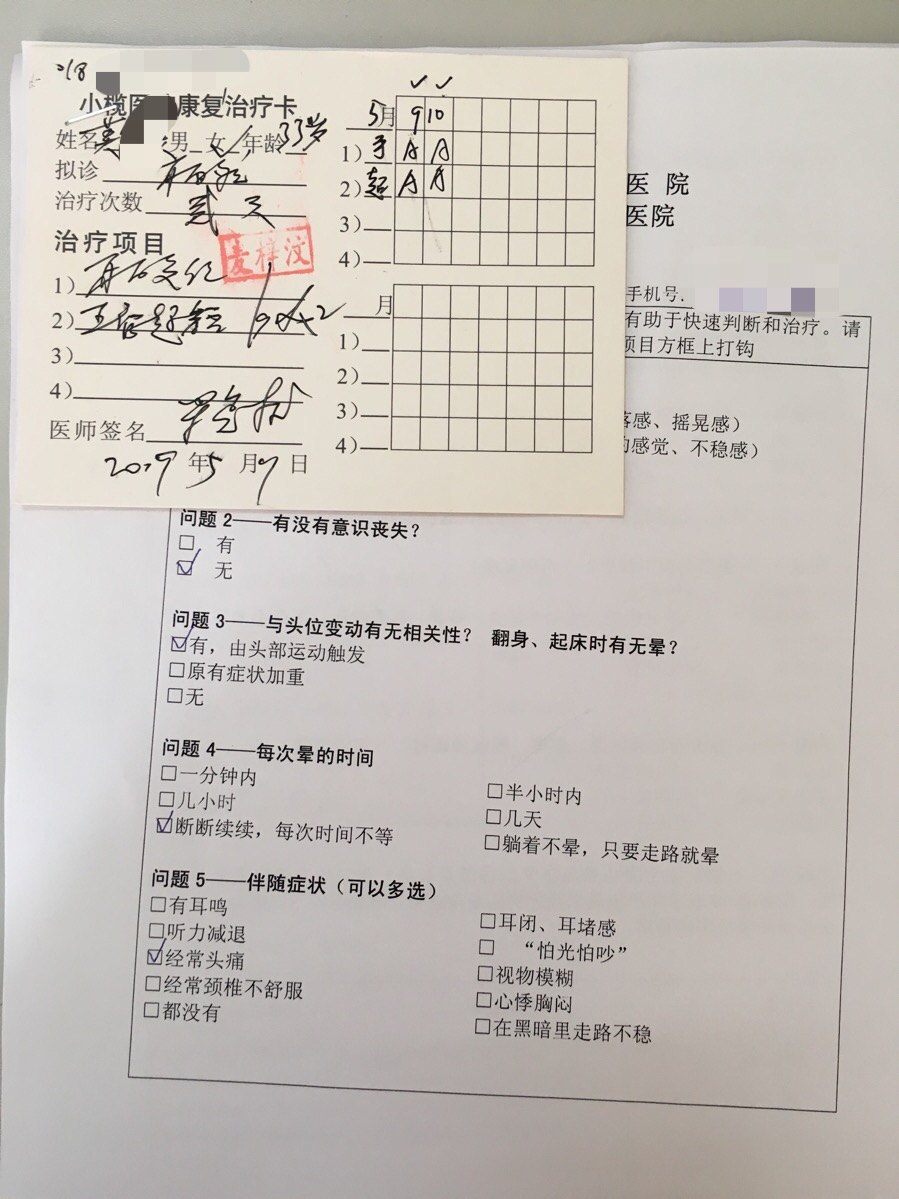 小榄医 康复治疗卡
姓名 男 女 年龄 33岁
拟诊
治疗次数 贰天
治疗项目
麦梓汶
1)
2)
3)
4)
医师签名
2019年5月9日
5月 9 10
1) 手
2) 超
3)
4)
月
1)
2)
3)
4)
医 院
医院
手机号.
有助于快速判断和治疗。请
项目方框上打钩
落感、摇晃感）
的感觉、不稳感）
问题 2——有没有意识丧失？
□ 有
☑ 无
问题 3——与头位变动有无相关性？ 翻身、起床时有无晕？
☑有，由头部运动触发
□原有症状加重
□无
问题 4——每次晕的时间
□一分钟内 □半小时内
□几小时 □几天
☑断断续续，每次时间不等 □躺着不晕，只要走路就晕
问题 5——伴随症状（可以多选）
□有耳鸣 □耳闭、耳堵感
□听力减退 □ “怕光怕吵”
☑经常头痛 □视物模糊
□经常颈椎不舒服 □心悸胸闷
□都没有 □在黑暗里走路不稳